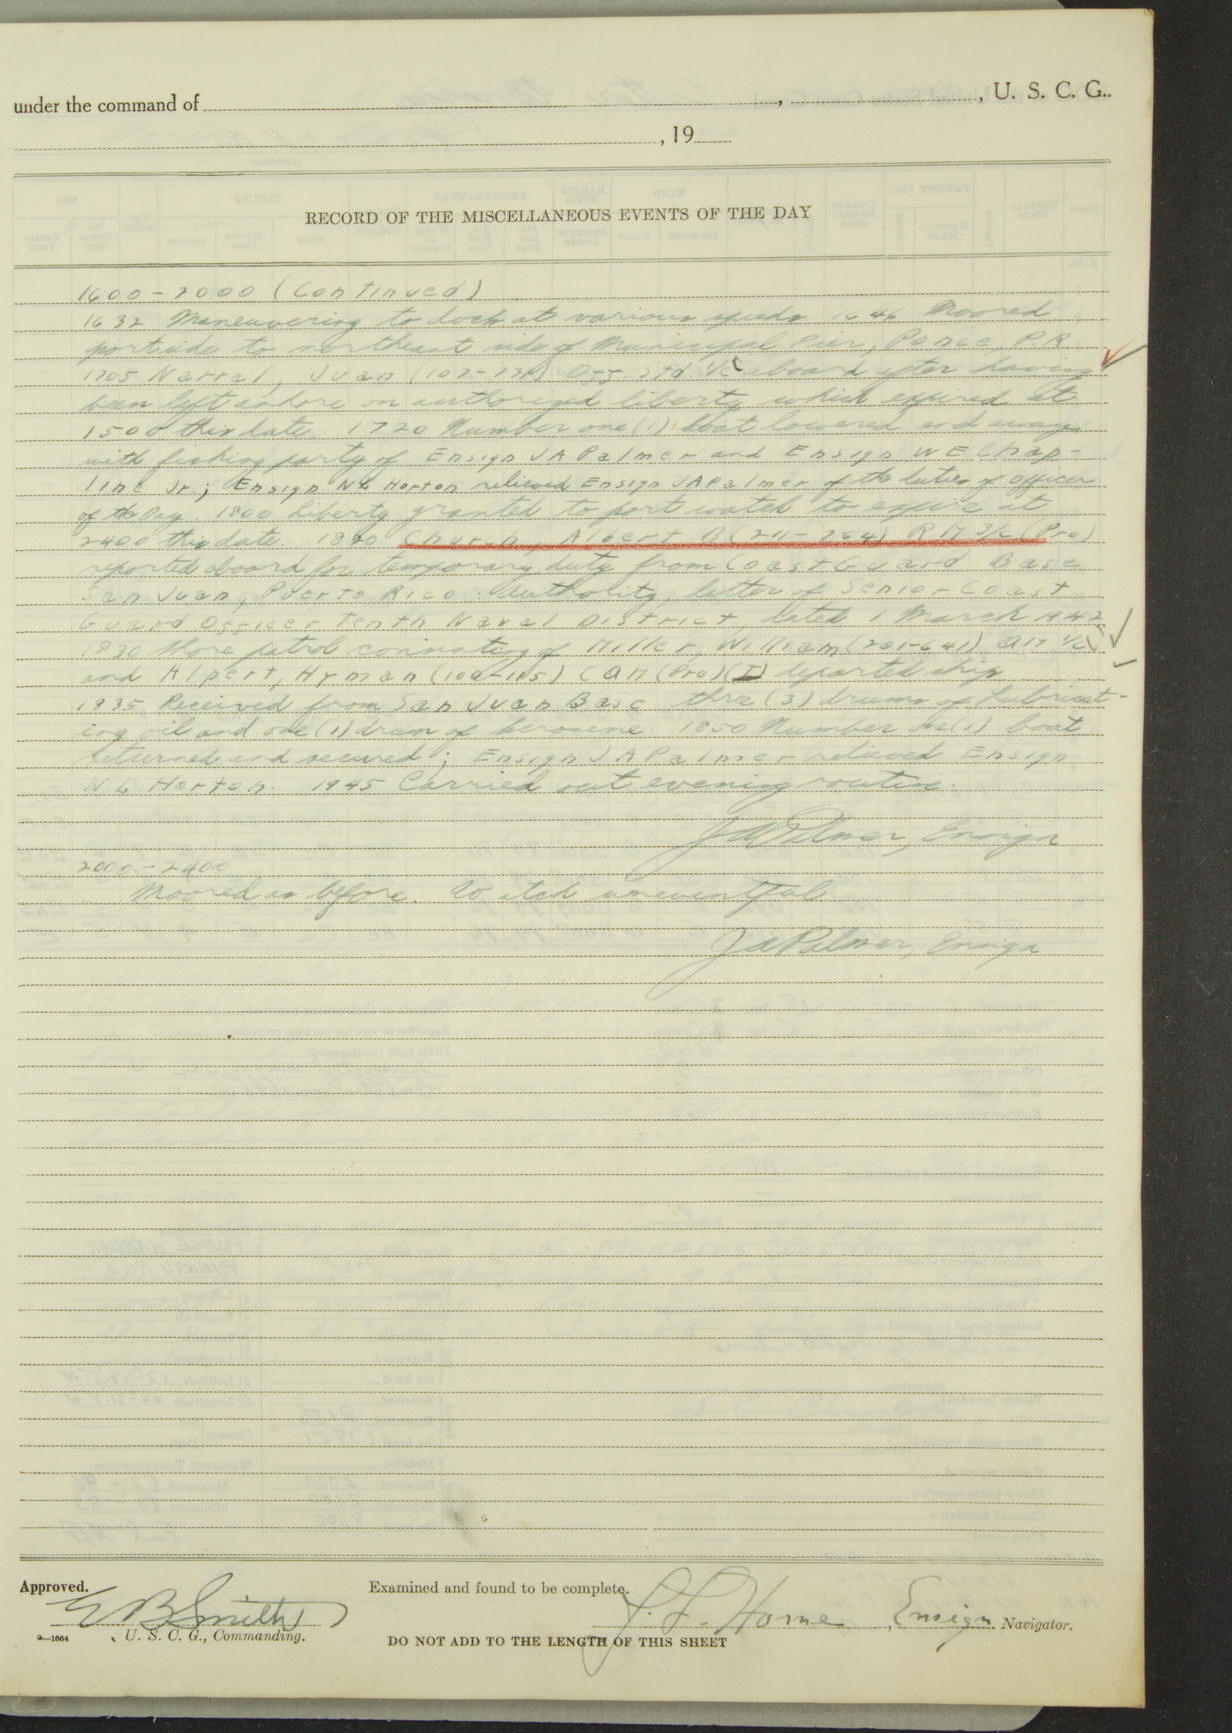 under the command of , , U. S. C. G..
, 19
RECORD OF THE MISCELLANEOUS EVENTS OF THE DAY
1600-2000 (Continued)
1632 Maneuvering to dock at various speeds. 1646 Moored
portside to northeast side of Municipal Pier, Ponce, P.R.
1705 Juan Off. Std. aboard after having
been left ashore on authorized liberty which expired at
1500 this date. 1720 Number one (1) boat lowered and away
with fishing party of Ensign J A Palmer and Ensign W E Chap-
line Jr.; Ensign Horton relieved Ensign J A Palmer of the duties of officer
of the Day. 1800 Liberty granted to port watch to expire at
2400 this date. 1820 Church, Albert (211-264) R M 3/c (Pro)
reported aboard for temporary duty from Coast Guard Base
San Juan, Puerto Rico. Authority, letter of Senior Coast
Guard Officer Tenth Naval District, dated 1 March 1942
1830 Shore patrol consisting of Miller, William (201-641)
and Alpert, Hyman (Pro) (I) departed ship
1835 Received from San Juan Base three (3) drums of lubricat-
ing oil and one (1) drum of kerosene. 1850 Number one (1) boat
returned and secured; Ensign J A Palmer relieved Ensign
Horton. 1945 Carried out evening routine.
J A Palmer, Ensign
2000-2400
Moored as before. Watch uneventful
J A Palmer, Ensign
Approved. Examined and found to be complete.
E B Smith J. L. Horne, Ensign, Navigator.
9—1664 , U. S. C. G., Commanding.
DO NOT ADD TO THE LENGTH OF THIS SHEET